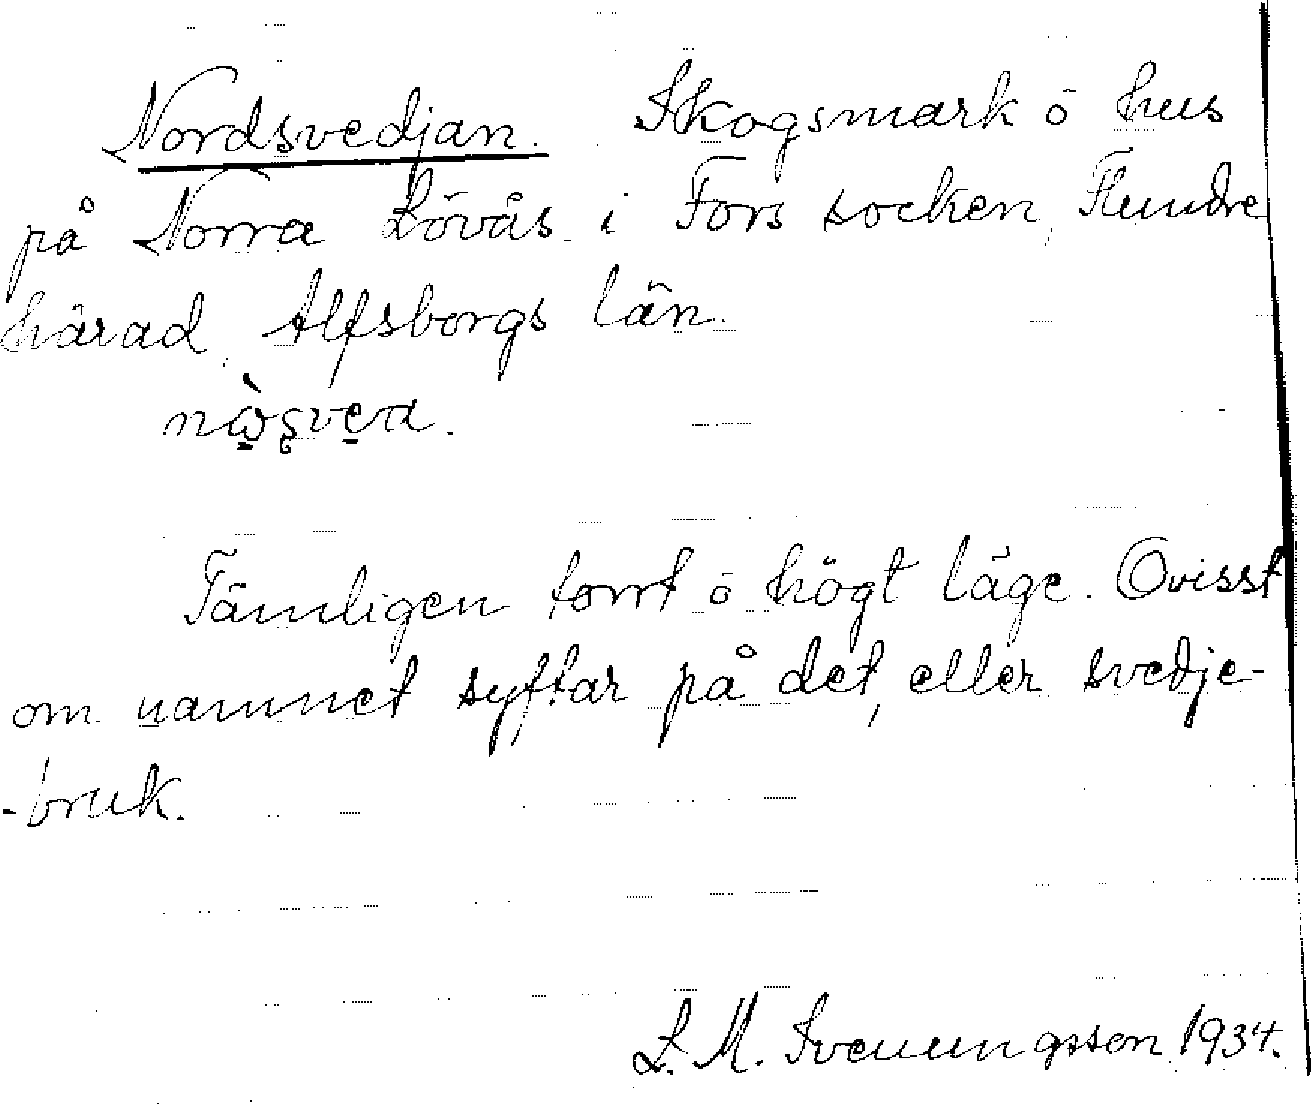 Nordsvedjan. Skogsmark ö hus
på Norra Lövås i Fors socken, Flundre
härad, Älfsborgs län.
Tämligen torrt ö högt läge. Ovisst
om namnet syftar på det, eller svedje-
-bruk.
L. M. Svenungsson 1934.